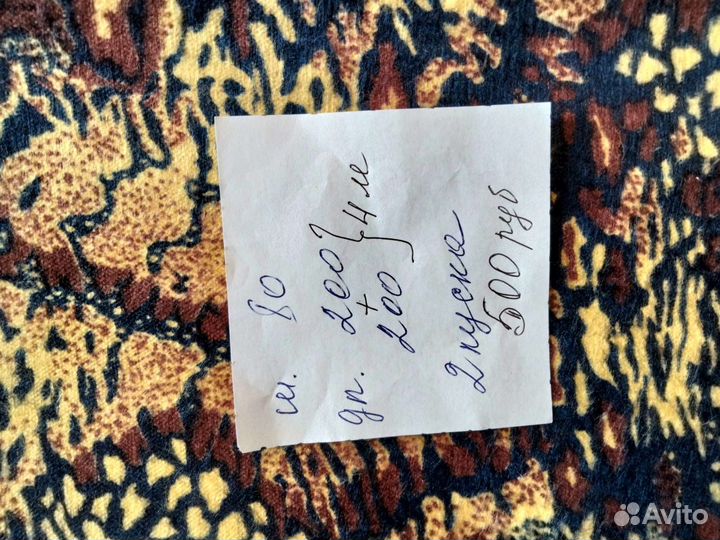 ш. 80
дл. 200 + 200 } 4 м
2 куска
500 руб
Avito